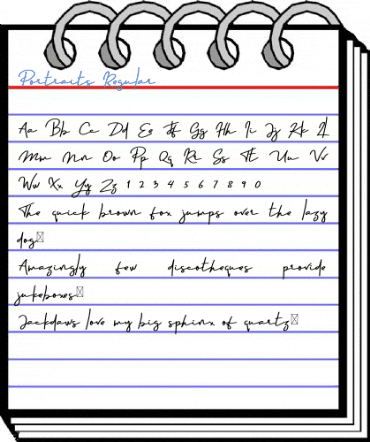 Portraits Regular
Aa Bb Cc Dd Ee Ff Gg Hh Ii Jj Kk Ll
Mm Nn Oo Pp Qq Rr Ss Tt Uu Vv
Ww Xx Yy Zz 1 2 3 4 5 6 7 8 9 0
The quick brown fox jumps over the lazy
dog
Amazingly few discotheques provide
jukeboxes
Jackdaws love my big sphinx of quartz